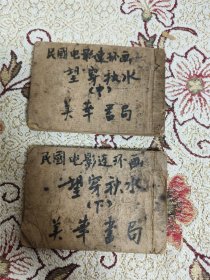 民國电影连环画
望穿秋水
(中)
美華書局
民國电影连环画
望穿秋水
(下)
美華書局